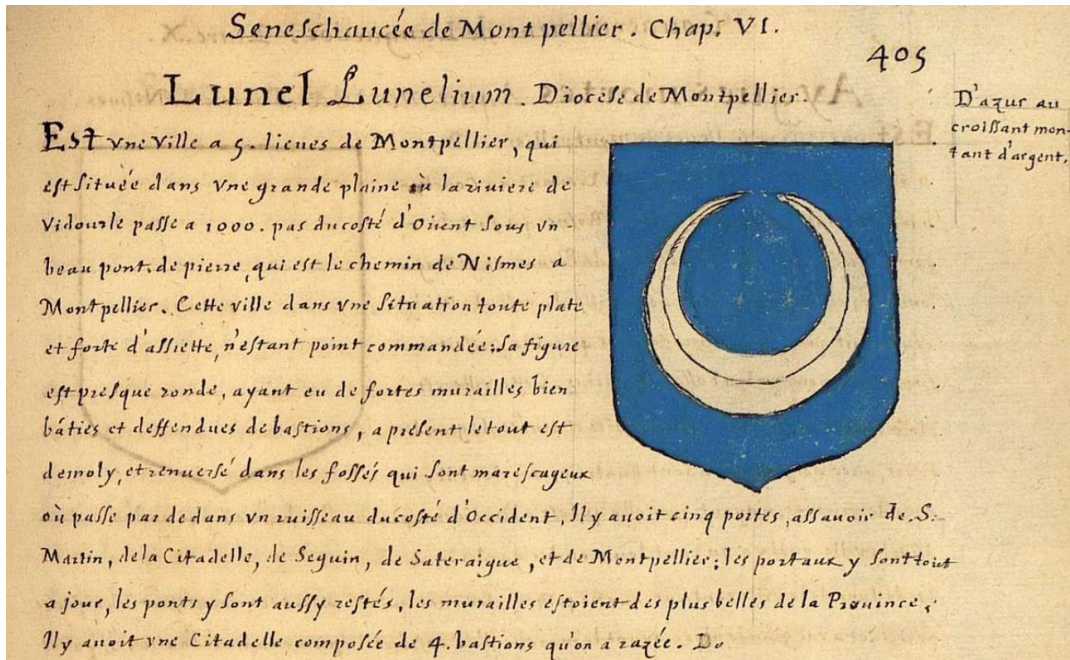 Seneschaucée de Montpellier. Chap. VI.
405
Lunel Lunelium. Diocese de Montpellier.
D'azur au
croissant mon-
tant d'argent.
Est vne ville a 5. lieues de Montpellier, qui
est située dans vne grande plaine ou la riviere de
Vidourle passe a 1000. pas du costé d'Orient sous vn
beau pont de pierre, qui est le chemin de Nismes a
Montpellier. Cette ville dans vne situation toute plate
et forte d'assiette, n'estant point commandée; sa figure
est presque ronde, ayant eu de fortes murailles bien
bâties et deffendues de bastions, a present le tout est
demoly, et renversé dans les fossés qui sont marescageux
où passe par dedans vn ruisseau du costé d'Occident, Il y auoit cinq portes, assauoir de S.
Martin, de la Citadelle, de Seguin, de Sateraigue, et de Montpellier; les portaux y sont tout
a jour, les ponts y sont aussy restés, les murailles estoient des plus belles de la Prouince,
Il y auoit vne Citadelle composée de 4. bastions qu'on a razée. Do